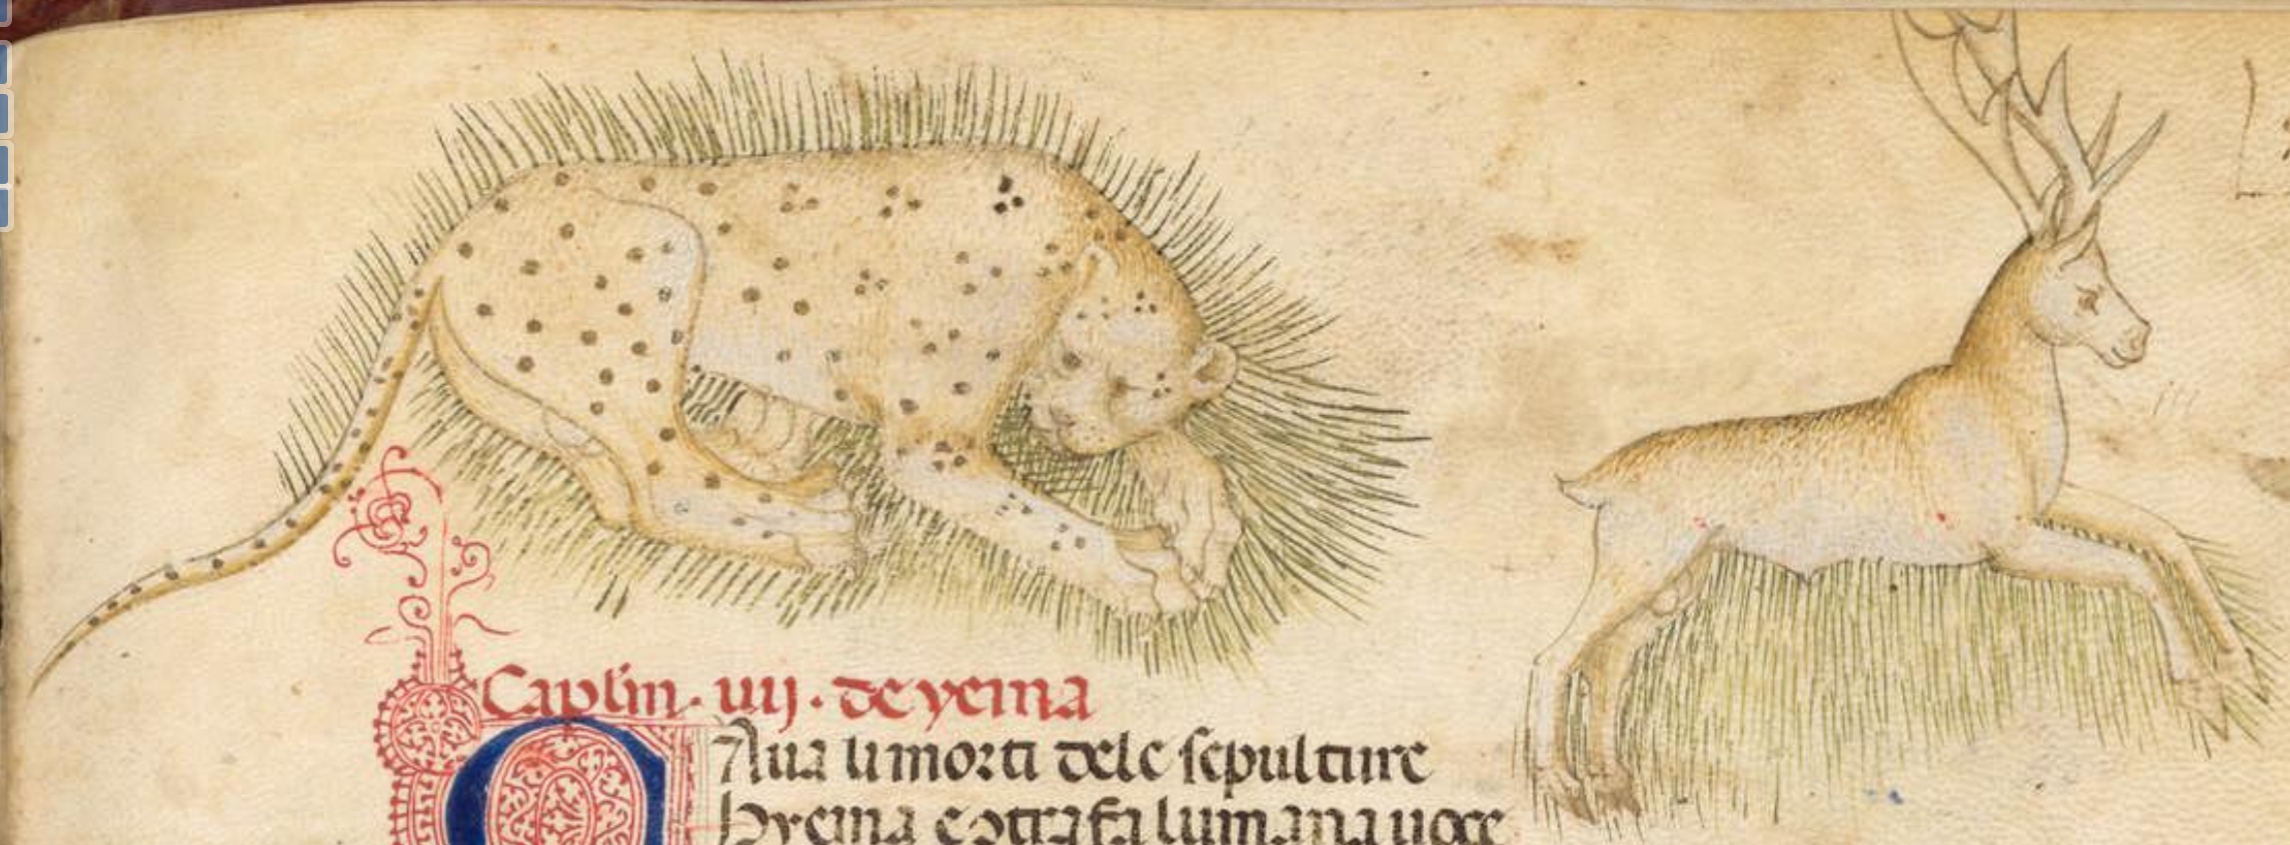 Caplm · iiij · de yeina
CAua li morti dele sepulture
Hyeina e ꝯtrafa lumana uoce